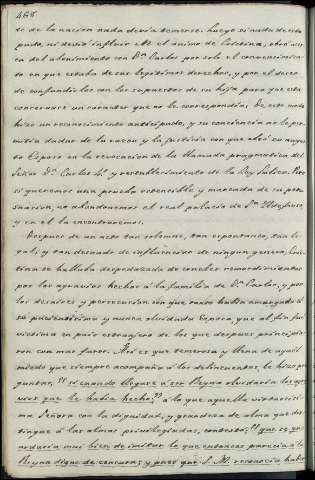 468
te de la nacion nada devia temerse. Luego si nada de esto
pudo, ni devió influir en el animo de Cristina, obró acer
ca del abenimiento con Dn. Carlos por solo el convencimien
to en que estaba de sus legitimos derechos, y por el deseo
de confundirlos con los supuestos de su hija para que esta
conservase un caracter que no la correspondia. De este modo
hizo un reconocimiento anticipado, y su conciencia no la per
mitia dudar de la razon y la justicia con que obró su augus
to Esposo en la revocacion de la llamada pragmatica del
Señor Dn. Carlos 4º y restablecimiento de la Ley Salica. Pero
si queremos una prueba ostensible y marcada de su per
suasion, no abandonemos el real palacio de Sn. Ildefonso,
y en el la encontraremos.
Despues de un acto tan solemne, tan espontaneo, tan le
gal, y tan desnudo de influencias de ningun genero, Cris
tina se hallaba despedazada de crueles remordimientos
por los agravios hechos á la familia de Dn. Carlos, y por
los desaires y persecucion con que havia amargado á
su prudentisima y nunca olvidada Esposa, que al fin fue
victima en pais extrangero de los que despues principia
ron con mas furor. Asi es que temerosa y llena de aquel
miedo que siempre acompaña á los delincuentes, la hizo pre
guntar, "si cuando llegase á ser Reyna olvidaria los agra
vios que la habia hecho;" á lo que aquella virtuosisi
ma Señora con la dignidad, y grandeza de alma que dis
tingue á las almas privilegiadas, contestó: "que se gu
ardaria muy bien de imitar lo que entonces parecia á la
Reyna digno de censura; y pues que S. M. reconocia haber